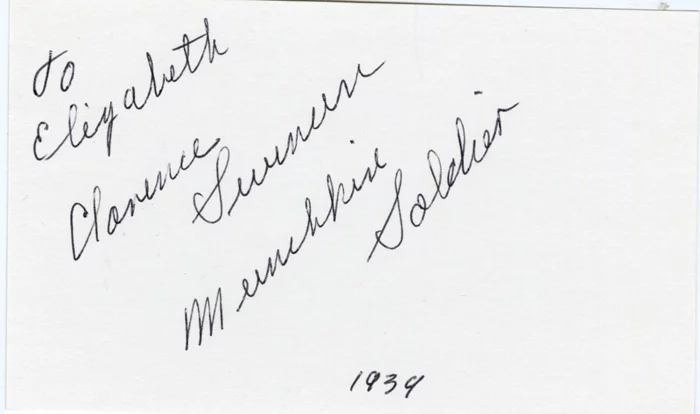 To
Elizabeth
Clarence
Swensen
Munchkin
Soldier
1939